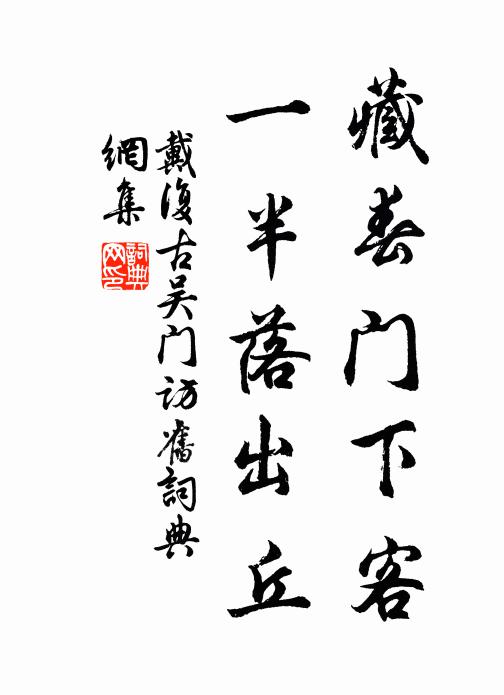 藏春门下客
一半落出丘
戴復古吴门访舊詞典
網集
詞典
网印